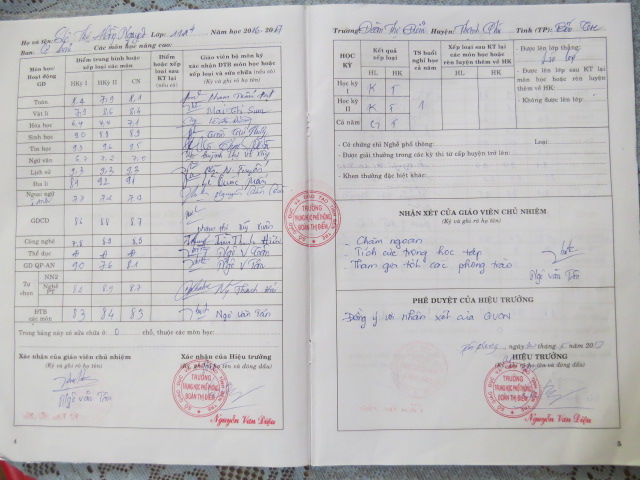 Họ và tên: Lê Thị Mộng Nguyệt Lớp: 11A4 Năm học 2016-2017
Ban: Cơ bản Các môn học nâng cao:
Môn học/ Hoạt động GD
Điểm trung bình hoặc xếp loại các môn
HKỳ I HKỳ II CN
Điểm hoặc xếp loại sau KT lại (nếu có)
Giáo viên bộ môn ký xác nhận ĐTB môn học hoặc xếp loại và sửa chữa (nếu có)
(Ký và ghi rõ họ tên)
Toán 8.4 7.9 8.1
Vật lí 7.9 8.6 8.4
Hóa học
Sinh học 9.0 8.8 8.9
Tin học 9.3 9.6 9.5
Ngữ văn 6.7 7.2 7.0
Lịch sử 9.3 9.3 9.3
Địa lí 8.9 9.2 9.1
Ngoại ngữ Anh
GDCD 8.6 8.8 8.7
Công nghệ 7.8 8.9 8.5
Thể dục Đ Đ Đ Ngô V Tân
GD QP-AN 9.0 7.6 8.1 Ngô V Tân
Tự chọn
NN2
Nghề PT 8.4 8.9 8.7
ĐTB các môn 8.3 8.4 8.3 Ngô văn Tân
Trong bảng này có sửa chữa ở: 0 chỗ, thuộc các môn học:
Xác nhận của giáo viên chủ nhiệm
(Ký và ghi rõ họ tên)
Ngô văn Tân
Xác nhận của Hiệu trưởng
(Ký, ghi rõ họ tên và đóng dấu)
SỞ GIÁO DỤC VÀ ĐÀO TẠO TỈNH BẾN TRE
TRƯỜNG
TRUNG HỌC PHỔ THÔNG
ĐOÀN THỊ ĐIỂM
Nguyễn Văn Diệu
4
Trường: Đoàn Thị Điểm Huyện: Thạnh Phú Tỉnh (TP): Bến Tre
HỌC KỲ
Kết quả xếp loại
HL HK
TS buổi nghỉ học cả năm
Xếp loại sau KT lại các môn học hoặc rèn luyện thêm về HK
HL HK
Học kỳ I K T
Học kỳ II K T
Cả năm G T
1
- Được lên lớp thẳng:
Lên lớp
- Được lên lớp sau KT lại môn học hoặc rèn luyện thêm về HK:
- Không được lên lớp:
- Có chứng chỉ Nghề phổ thông: Loại:
- Được giải thưởng trong các kỳ thi từ cấp huyện trở lên:
- Khen thưởng đặc biệt khác:
SỞ GIÁO DỤC VÀ ĐÀO TẠO TỈNH BẾN TRE
TRƯỜNG
TRUNG HỌC PHỔ THÔNG
ĐOÀN THỊ ĐIỂM
NHẬN XÉT CỦA GIÁO VIÊN CHỦ NHIỆM
(Ký và ghi rõ họ tên)
- Chăm ngoan
- Tích cực trong học tập
- Tham gia tốt các phong trào
Ngô văn Tân
PHÊ DUYỆT CỦA HIỆU TRƯỞNG
Đồng ý với nhận xét của GVCN
HIỆU TRƯỞNG
(Ký, ghi rõ họ tên và đóng dấu)
SỞ GIÁO DỤC VÀ ĐÀO TẠO TỈNH BẾN TRE
TRƯỜNG
TRUNG HỌC PHỔ THÔNG
ĐOÀN THỊ ĐIỂM
Nguyễn Văn Diệu
5